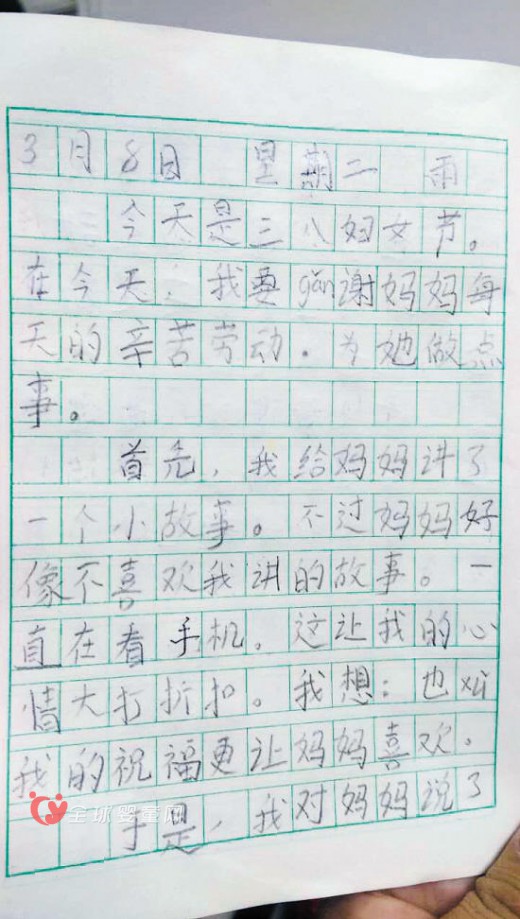 3月8日 星期二 雨
今天是三八妇女节。
在今天,我要gǎn谢妈妈每
天的辛苦劳动。为她做点
事。
首先,我给妈妈讲了
一个小故事。不过妈妈好
像不喜欢我讲的故事。一
直在看手机。这让我的心
情大打折扣。我想:也xǔ
我的祝福更让妈妈喜欢。
于是,我对妈妈说了
全球婴童网